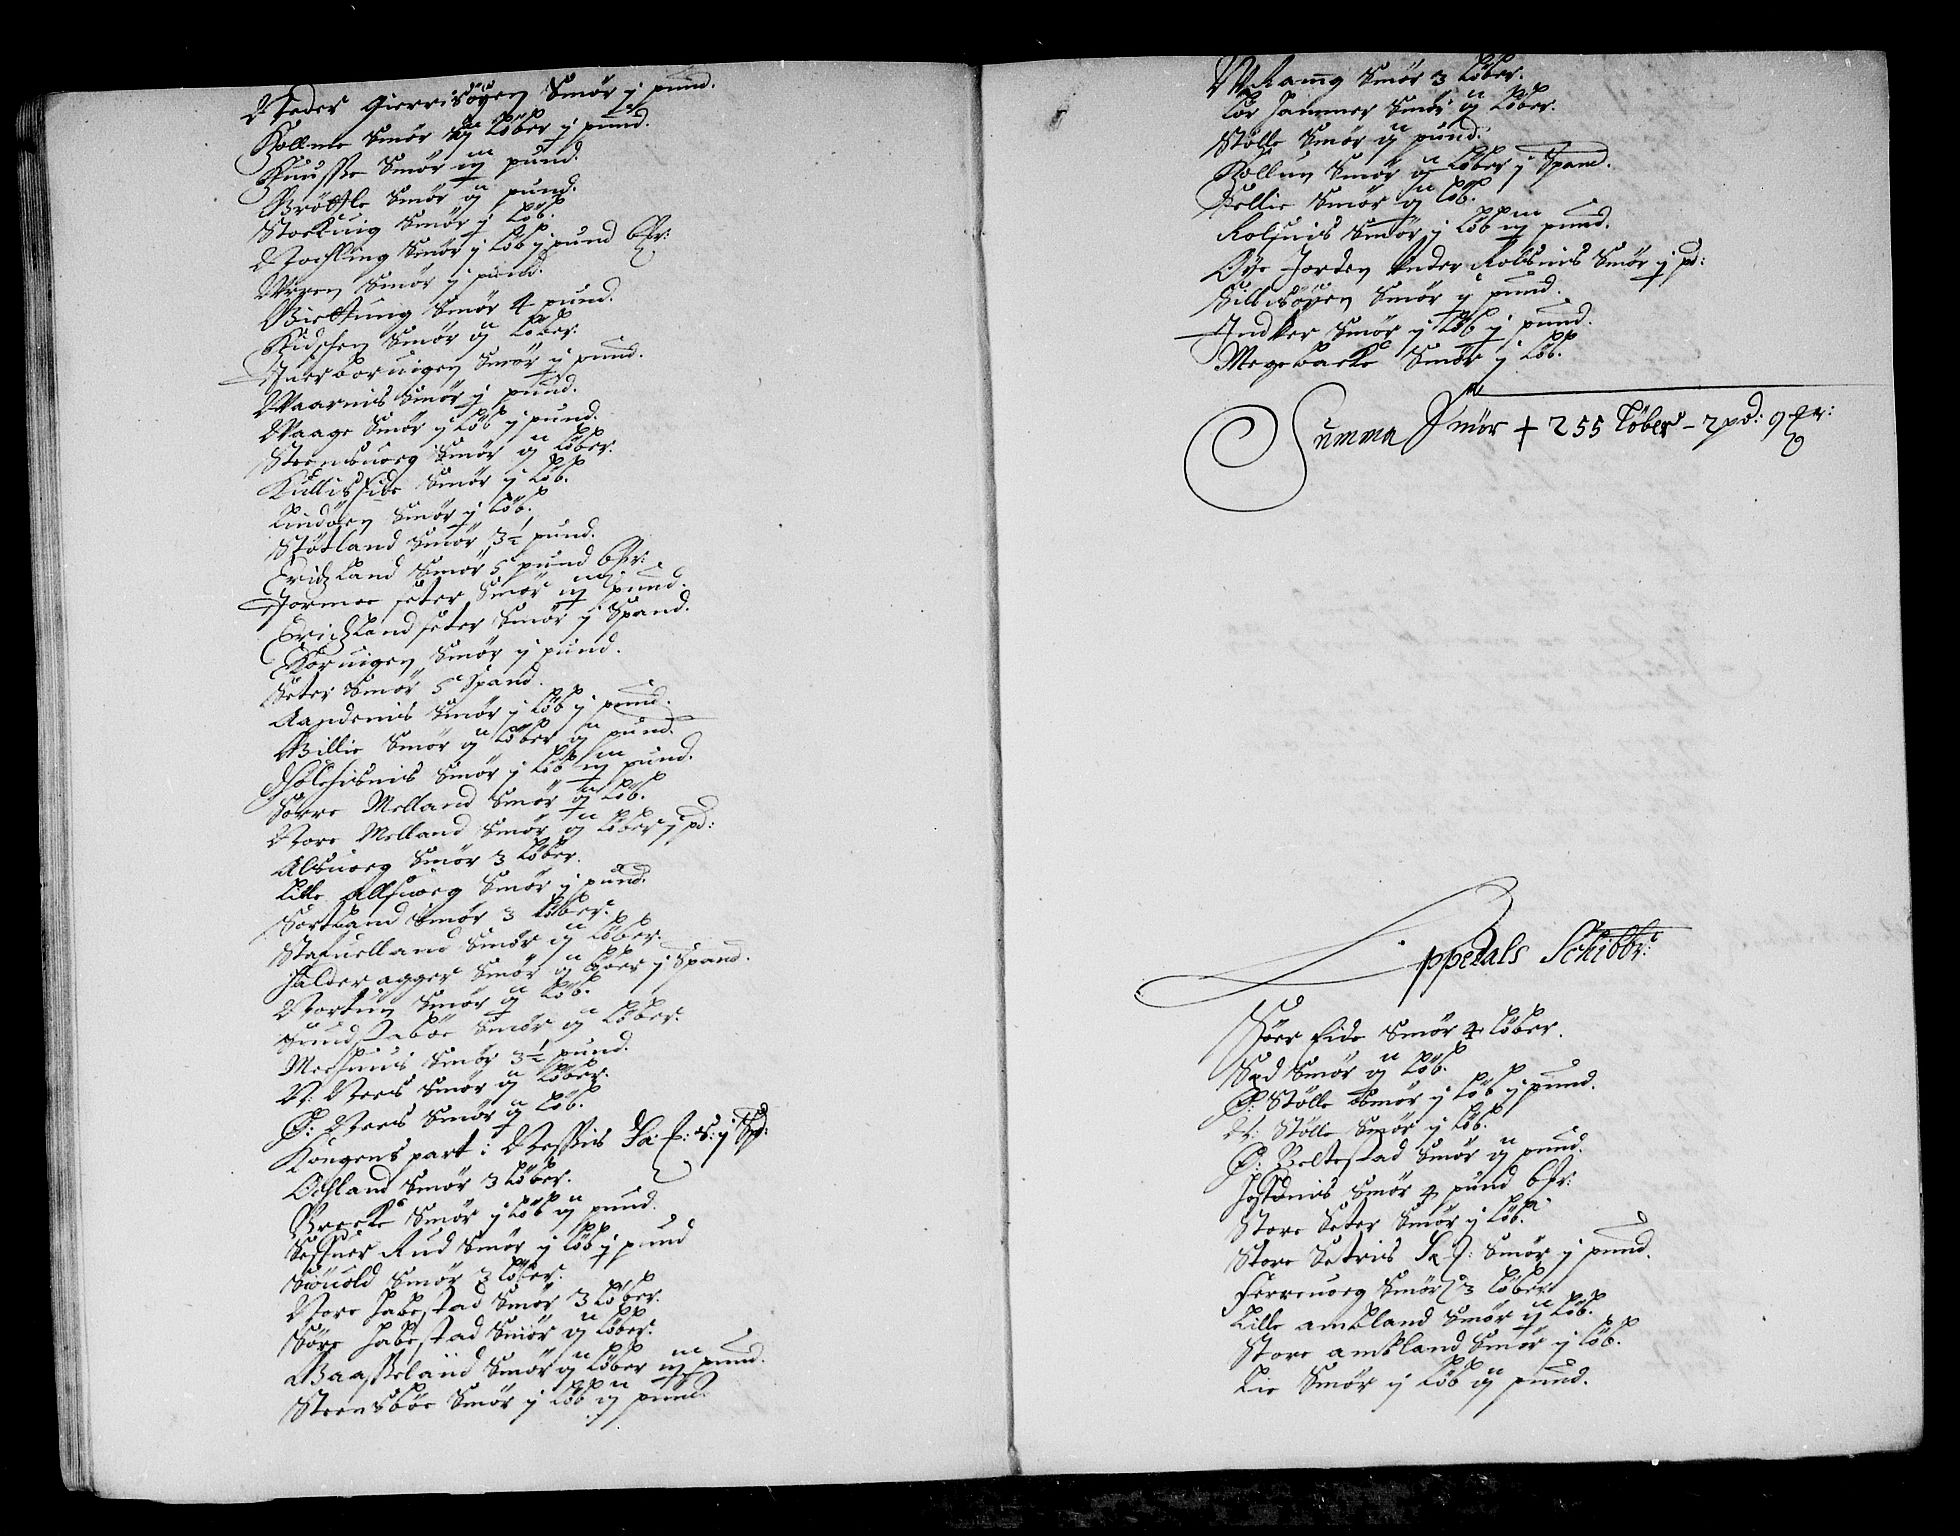 Neder Gierrisøyen Smør j pund.
Kollme Smør ij Løber j pund.
Knusse Smør iij pund.
Brøttle Smør ij pund.
Stocknig Smør j Løb.
Nochling Smør j Løb j pund 6 Mr:
Ween Smør j pund.
Biettung Smør 4 pund.
Kidssen Smør ij Løber.
Inerboruigen Smør j pund.
Waarnis Smør j pund.
Waage Smør j Løb j pund.
Steensuoeg Smør ij Løber.
Kullisside Smør j Løb.
Lindøen Smør j Løb.
Støtland Smør 3½ pund.
Erichland Smør 5 pund 6 Mr:
Tormoe seter Smør iij pund.
Erichland seter Smør j Spand.
Koruigen Smør j pund.
Seter Smør 5 Spand.
Aandenis Smør j Løb j pund.
Billie Smør ij Løber ij pund.
Holsisnis Smør j Løb iij pund.
Sørre Melland Smør ij Løb.
Nore Melland Smør ij Løber j pd:
Alsuoeg Smør 3 Løber.
Lille Allsuoeg Smør j pund.
Sortland Smør 3 Løber.
Stafuelland Smør ij Løber.
Halderagger Smør ij Løber j Spand.
Nortun Smør ij Løb.
Hundstaböe Smør ij Løber.
Meehuus Smør 3½ pund.
N: Nees Smør ij Løber.
Ø: Nees Smør ij Løb.
Kongens part i Nessis Sa: E: S: j Spd:
Ochland Smør 3 Løber.
Brecke Smør j Løb ij pund.
Sessner Rud Smør j Løb j pund
Siöuold Smør 3 Løber.
Nore Habestad Smør 3 Løber.
Søre Habestad Smør ij Løber.
Baasseland Smør ij Løber iij pund.
Steensböe Smør j Løb ij pund.
Wramg Smør 3 Løber.
Lør Hammer Smør ij Løber.
Stølle Smør ij pund.
Kollun Smør ij Løber j Spand.
Kellie Smør ij Løb.
Rolsnis Smør j Løb iij pund.
Øye Jorden under Rolsnis Smør j pd:
Sillisøyen Smør j pund.
Indker Smør j Løb j pund.
Mogebacke Smør j Løb.
Summa Smør + 255 Løber - 2 pd: 9 Mr:
Oppedals Schibbr:
Nöer Eide Smør 4 Løber.
Sæd Smør ij Løb.
Ø: Stølle Smør j Løb j pund.
N: Stølle Smør j Løb.
Ø: Beltestad Smør ij pund.
Hosdnis Smør 4 pund 6 Mr:
Store Seter Smør j Løb.
Store Setris Sa: E: Smør j pund.
Ferreuoeg Smør 3 Løber
Lille ambland Smør ij Løb.
Store ambland Smør j Løb.
Lie Smør j Løb ij pund.